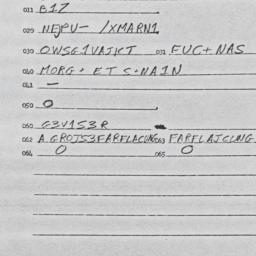 011 B1Z
029 NEJPU- /XMARN1
030 OWSG1VAJKT 031 FUC+NAS
040 MORG+ ET S+NA1N
041 —
050 O
050 G3V1S3R
062 A GROJS3FARFLACUNG 063 FARFLAJCUNG.
064 O 065 O